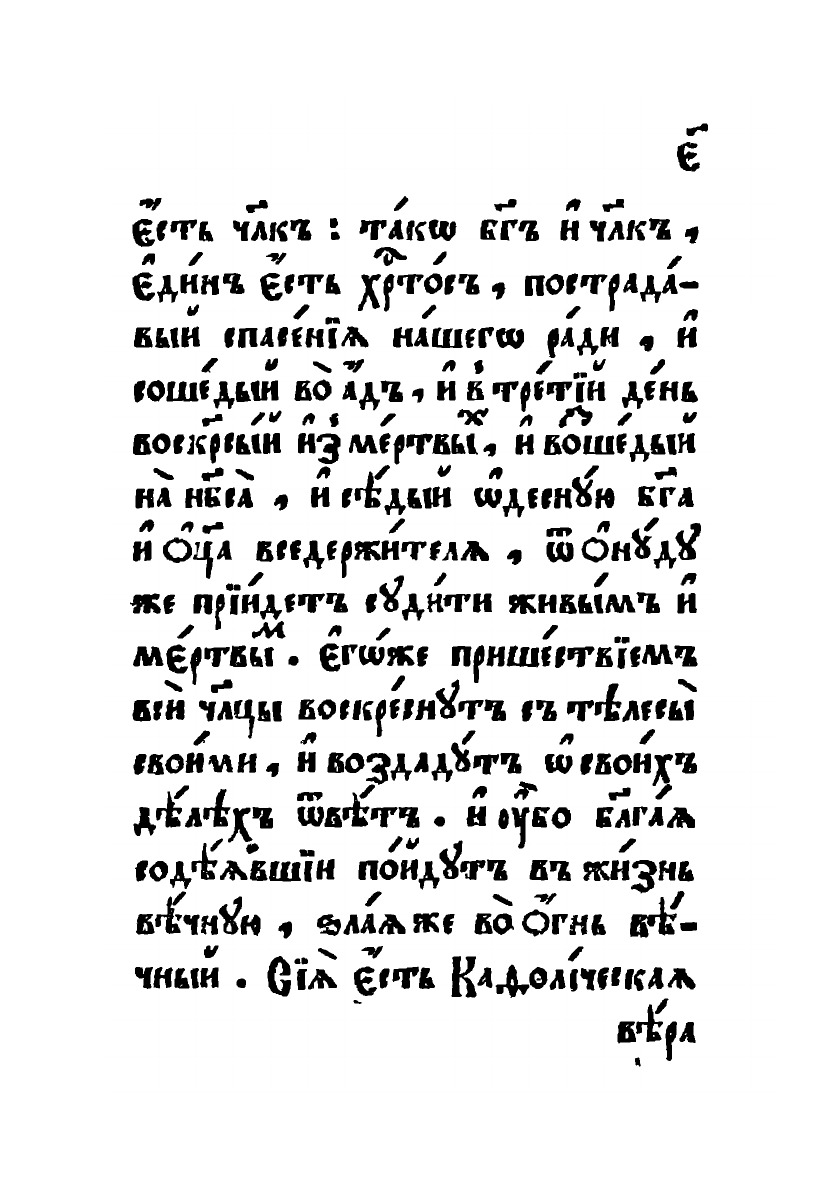 є҃
є҆́сть чл҃къ : та́кѡ бг҃ъ и҆ чл҃къ ,
є҆ди́нъ є҆́сть хрⷭ҇то́съ , пострада́-
вый спасе́нїѧ на́шегѡ ра́ди , и҆
соше́дый во̀ а҆́дъ , и҆ в̾ тре́тїй де́нь
воскр҃сы́й и҆з̾ ме́ртвыⷯ , и҆ воше́дый
на̀ нб҃са̀ , и҆ сѣ́дый ѡ҆десну́ю бг҃а
и҆ ѻ҆ц҃а вседержи́телѧ , ѿ ѻ҆нꙋ́дꙋ
же прїи́детъ сꙋди́ти живы́мъ и҆
мє́ртвыⷨ . є҆гѡ́же прише́ствїемъ
всѝ чл҃цы воскре́снꙋтъ съ тѣлесы̀
свои́ми , и҆ воздадꙋ́тъ ѡ҆ свои́хъ
дѣ́лѣхъ ѿвѣ́тъ . и҆ ᲂу҆́бо бл҃га́ѧ
содѣ́ѧвшїи по́йдꙋтъ въ жи́знь
вѣ́чнꙋю , ѕла́ѧ же во̀ ѻ҆́гнь вѣ́-
чный . Сїѧ̀ є҆́сть Каѳолі́ческаѧ
вѣ́ра